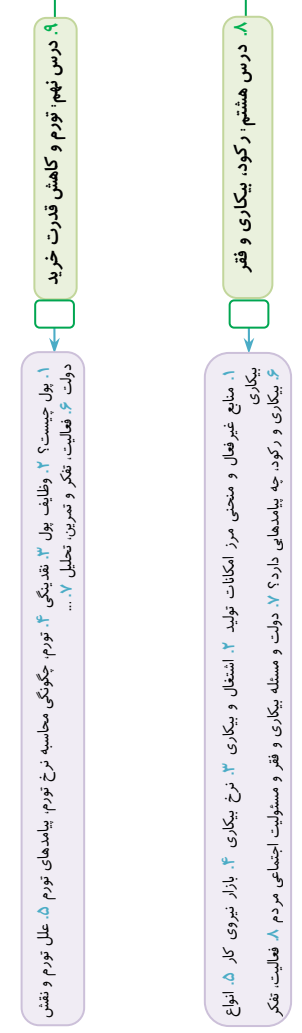 ۸. درس هشتم: رکود، بیکاری و فقر
۱. منابع غیرفعال و منحنی مرز امکانات تولید ۲. اشتغال و بیکاری ۳. نرخ بیکاری ۴. بازار نیروی کار ۵. انواع
بیکاری
۶. بیکاری و رکود، چه پیامدهایی دارد؟ ۷. دولت و مسئله بیکاری و فقر و مسئولیت اجتماعی مردم ۸. فعالیت، تفکر
۹. درس نهم: تورم و کاهش قدرت خرید
۱. پول چیست؟ ۲. وظایف پول ۳. نقدینگی ۴. تورم، چگونگی محاسبه نرخ تورم، پیامدهای تورم ۵. علل تورم و نقش
دولت ۶. فعالیت، تفکر و تمرین، تحلیل ۷. ...